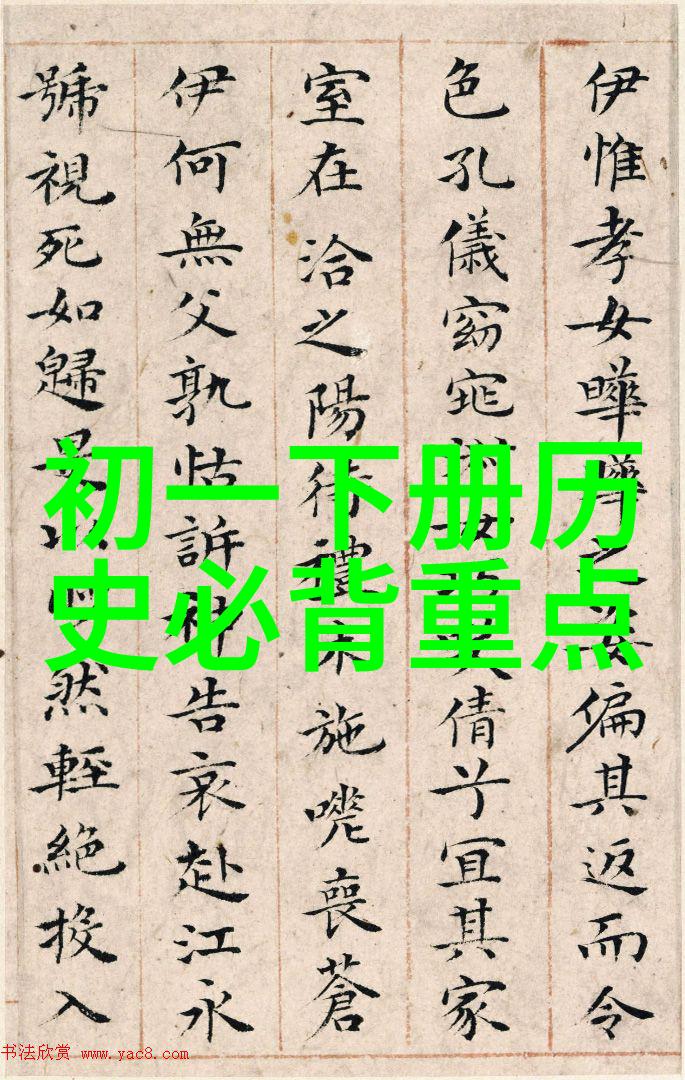 伊惟孝女曄曄之姿偏其返而令
色孔儀窈窕淑女笑倩兮宜其家
室在洽之陽待禮未施嗟喪蒼
伊何無父孰怙訴神告哀赴江永
號視死如歸是以然輕絕投入
初一下册历
史必背重点
书法欣赏 www.yac8.com